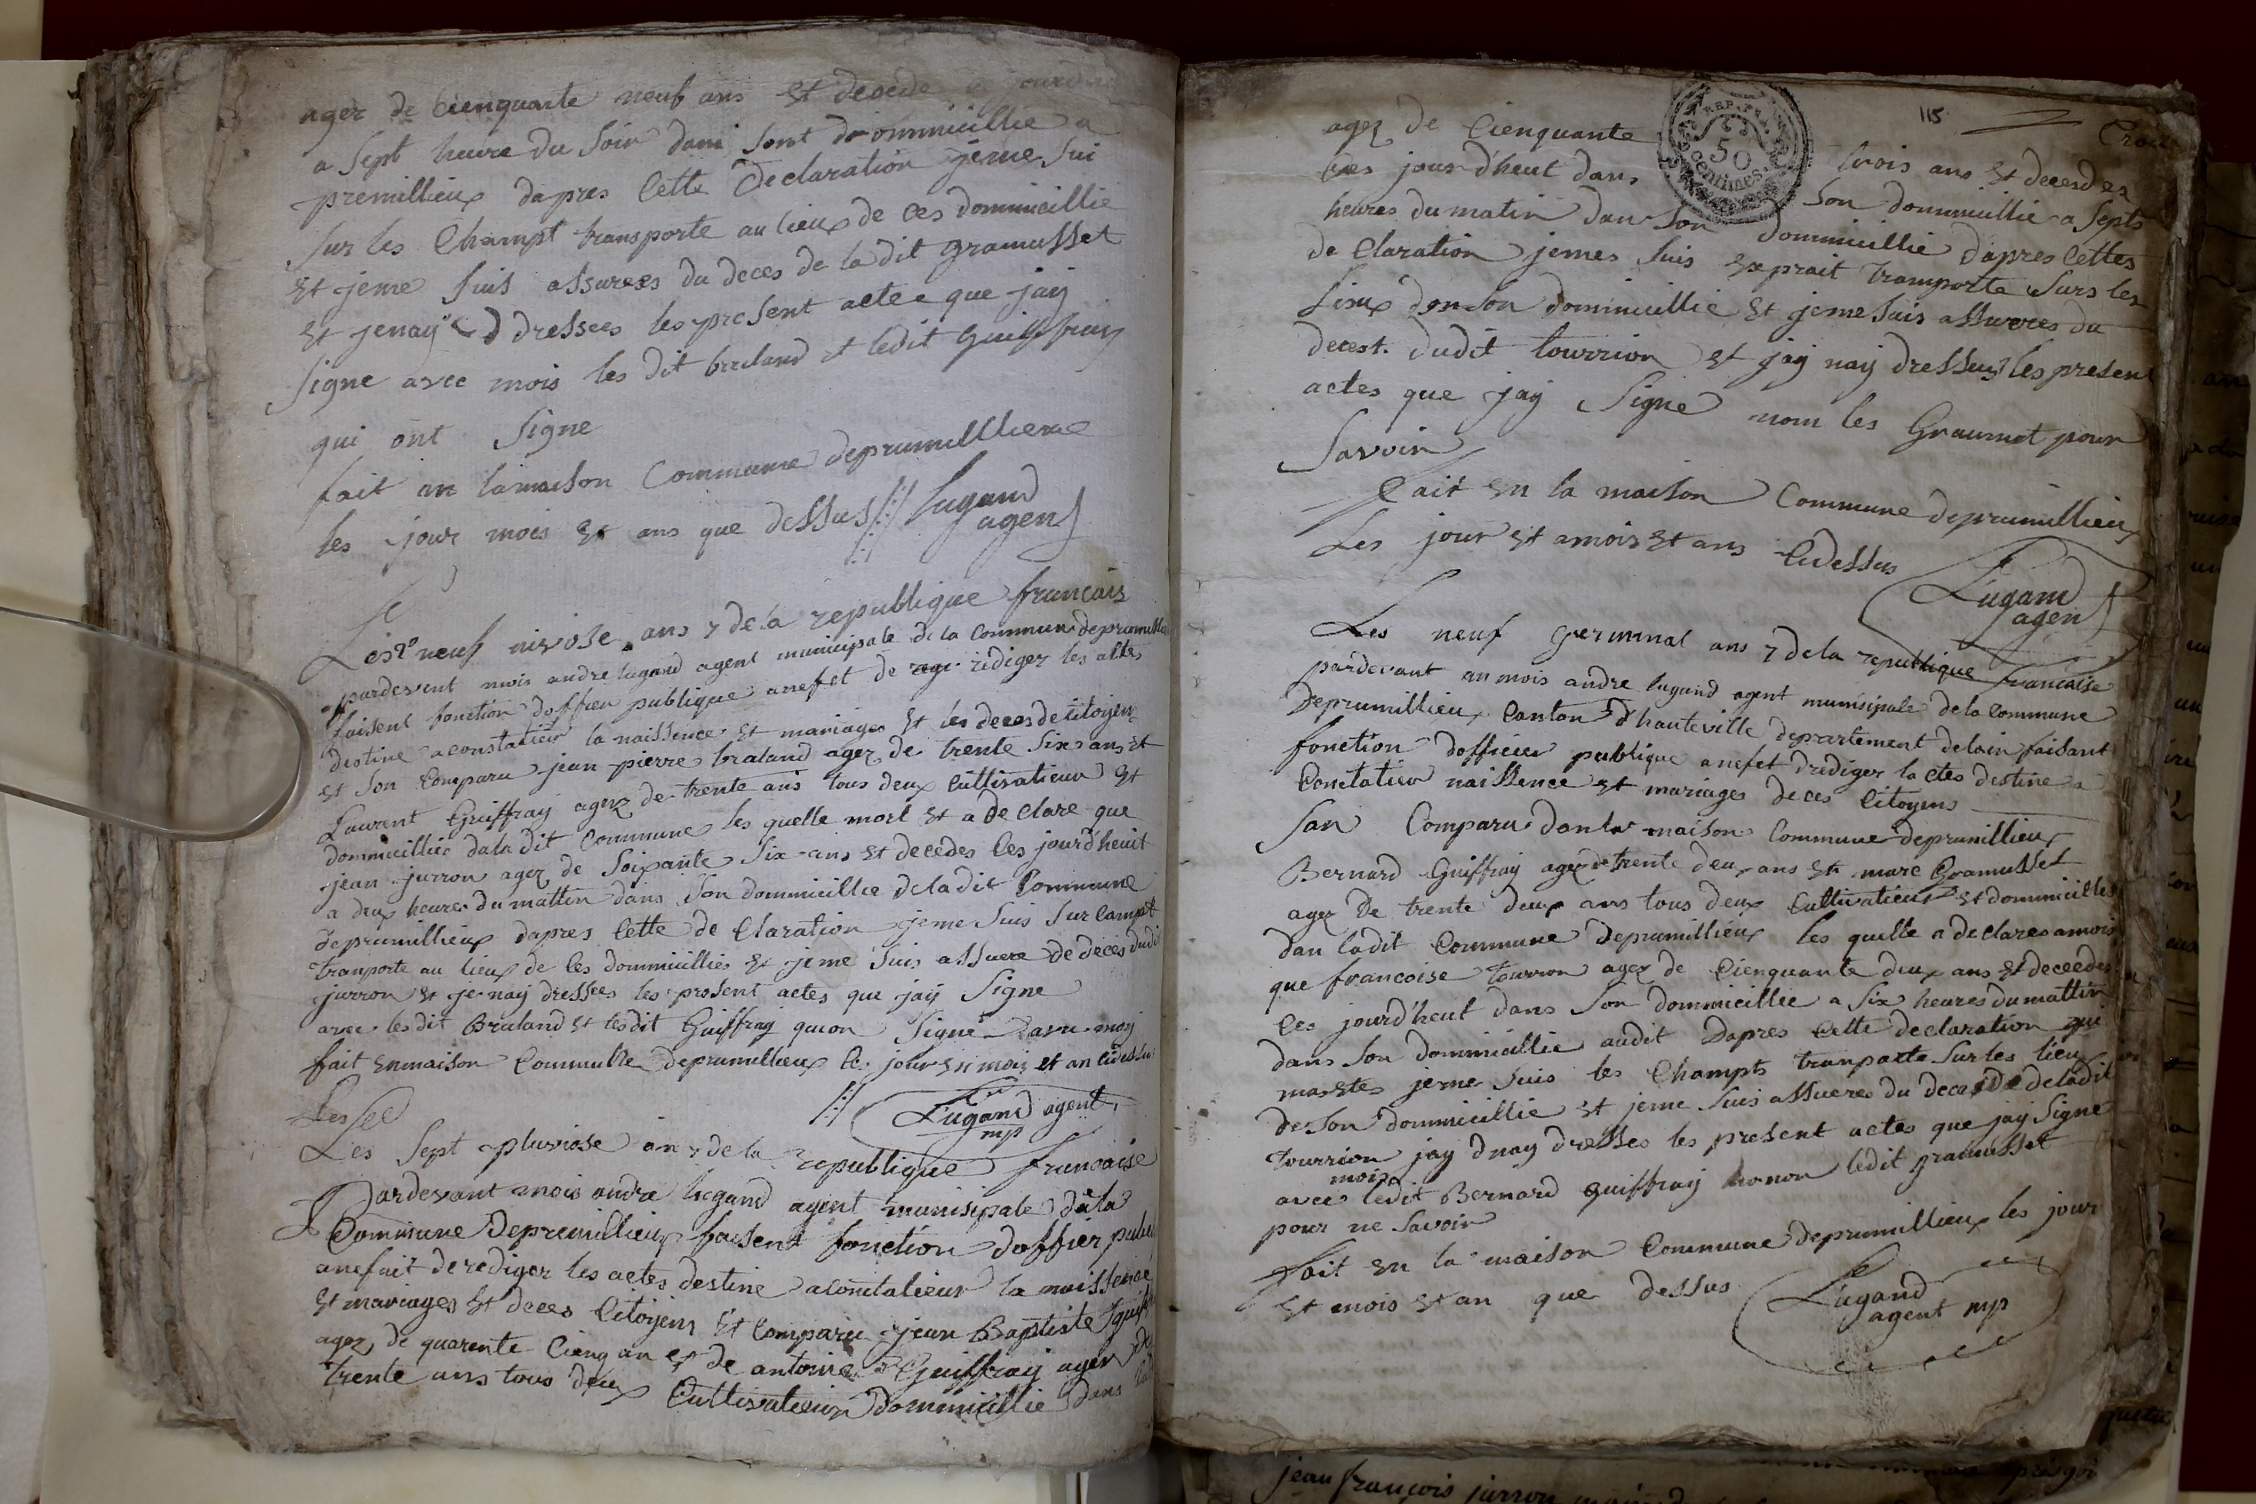 agez de cienquante neuf ans Et decede
a sept heure du soir dans sont dommicillie a
premillieux dapres Cette Declaration jeme sui
sur les Champt transporte au lieux de ces dommicillie
Et jeme suis assurees du deces de la dit gramusset
Et jenay dressees les present actee que jay
signe avec mois les dit braland et ledit guiffray
qui ont signe
fait an lamaison Commune deprumillieux
les jour mois Et ans que dessus Lugand
agent
Les neuf nivose ans 7 de la republique français
pardevent mois andre lugand agent municipale de la Commune deprumillieu
faisent fonction doffier publique anefet de redigez les actes
destine aconstatieur la naissence Et mariages Et les deces de Citoyen
Et son Comparu jean pierre braland agez de trente six ans Et
Laurent Guiffray agez de trente ans tous deux Cultivatieur Et
dommicillie dala dit Commune les quelle mort Et a de Clare que
jean jurron agez de soixante six ans Et decedes Ces jourd'heuit
a deux heures du mattin dans son dommicillie de la dit Commune
deprumillieux dapres Cette de Claration jeme suis sur Campt
tranporte au lieux de Ces dommicillies Et jeme suis assuere de deces dudit
jurron Et je nay dressees les present actes que jay signe
avec les dit Braland Et lesdit Guiffray quion signe avec moy
fait Enmaison Commune deprumillieux les jour En mois et an cidessu
Lugand agent
mp
Les
Les sept pluviose an 7 de la republique francaise
Pardevant mois andre lugand agent munisipale dela
Commune Depremillieux faisent fonction doffier publi
anefait de rediger les actes destine aConstatieur la naissence
Et mariages Et deces Citoyens Et Comparu jean Baptiste
agez de quarente Cienq an Et de antoine Guiffray agez de
trente ans tous deux Cultivatieur dommicillie dans
115
REP. FRA.
50
centimes
agez de Cienquante trois ans Et decedes
Ces jourd'heut dans son dommicillie a sept
heures du matin dan son dommicillie dapres Cettes
de Claration jemes suis exprait tramporte surs les
Lieux dan son dommicillie Et jeme suis assurees du
decest dudit tourrion Et jay nay dressees les present
actes que jay signe nom les Graumot pour
Savoir
Fait En la maison Commune deprumillieux
Les jour Et amois Et ans Cidessus
Lugand
agent
Les neuf germinal ans 7 dela republique francaise
pardevant an mois andre lugand agent munisipale dela Commune
Deprumillieux Canton d'hauteville departement delain faisant
fonction dofficier publique anefet drediger lactes destine a
Constatieu naissence Et mariages de ces Citoyens
San Comparu danla maison Commune deprumillieux
Bernard Guiffray agez de trente deux ans Et marc Gramusset
agez De trente deux ans tous deux Cultivatieur Et dommicilles
dan ladit Commune Deprumillieux les quelle a declares amois
que francoise tourron agez de Cienquante deux ans Et deceedes
Ces jourd'heut dans son dommicillie a six heures du mattin
dans son dommicillie audit Dapres Cette declaration qui
mastes jeme suis les Champts tranporte sur les lieux
de son dommicillie Et jeme suis assueres du deces de deladit
tourrion jay dnay dresses les present actes que jay signe
mois
avec ledit Bernard guiffray nonon ledit gramusset
pour ne savoir
Fait En la maison Commune deprumillieux les jour
Et mois Et an que dessus
Lugand
agent mp
jean françois jurron